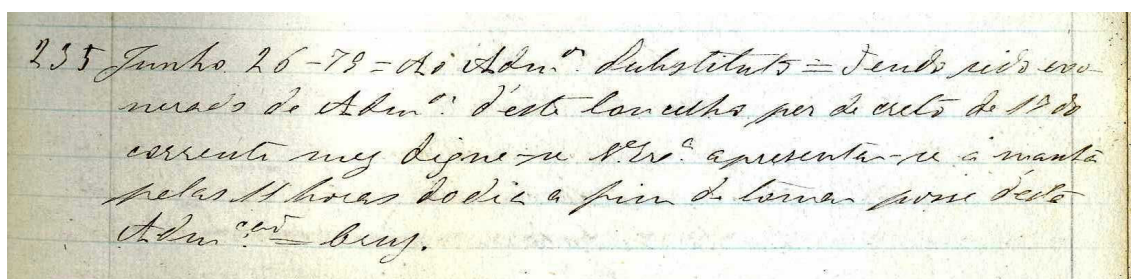 235 Junho 26-79 = Ao Admor. Substituto = Tendo sido exo-
nerado de Admor. d'este Concelho por decreto de 19 do
corrente mez digne-se V. Exa. apresentar-se á manhã
pelas 11 horas do dia a fim de tomar posse desta
Admcção = Cruz.